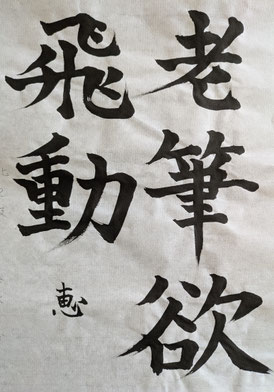 老筆欲
飛動
恵